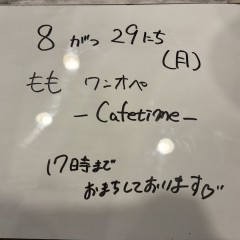 8 がつ 29にち
(月)
もも ワンオペ
- Cafetime -
17時まで
おまちしております♡